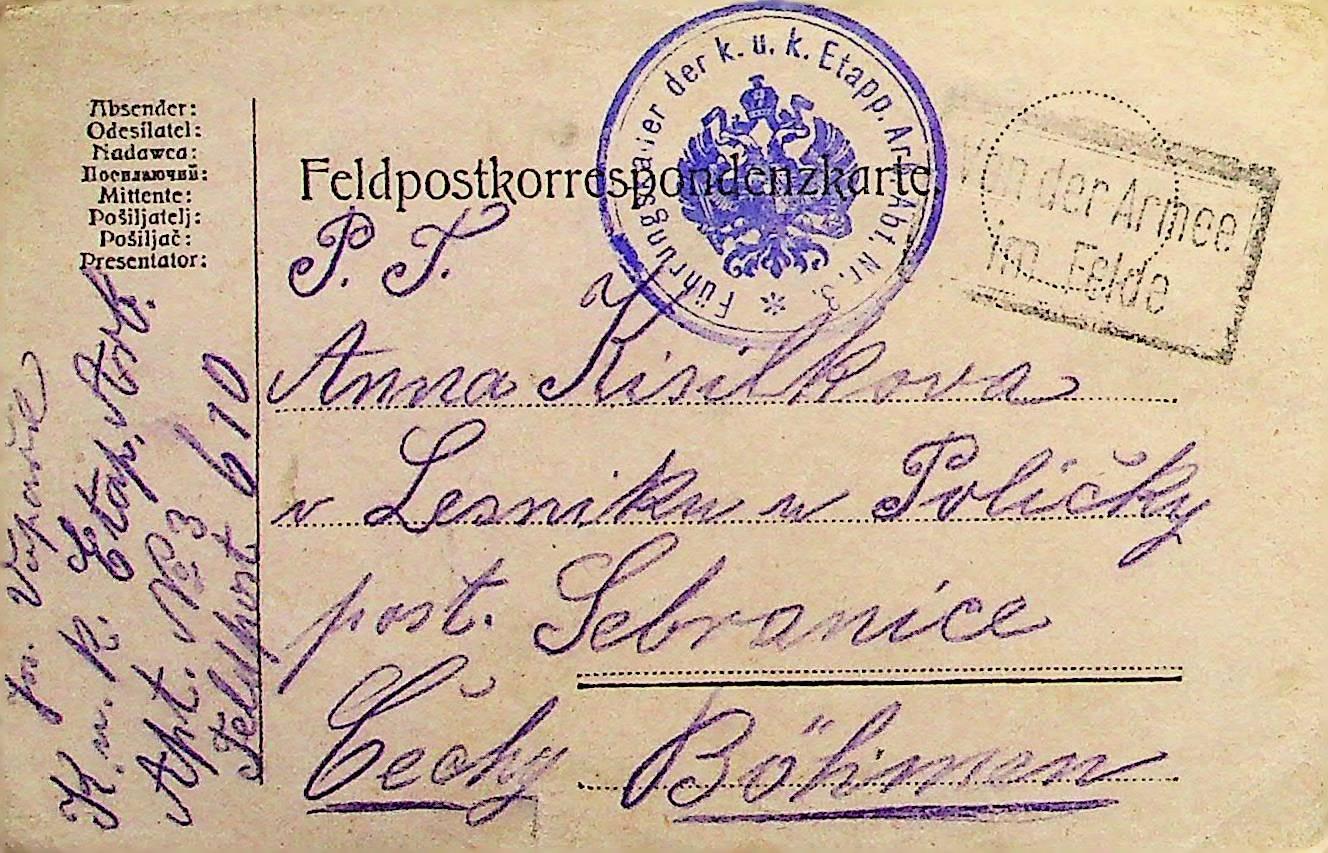 Absender:
Odesílatel:
Nadawca:
Посилаючий:
Mittente:
Pošiljatelj:
Pošiljač:
Presentator:
Feldpostkorrespondenzkarte
der k. u. k. Etapp. Arb. Abt. Nr. 3. *
Von der Armee
im Felde
P. T.
Anna Kisilkova
v Lesniku u Poličky
post. Sebranice
Čechy Böhmen
K. u. K. Etap. Arb.
Apt. No 3
Feldpost 610